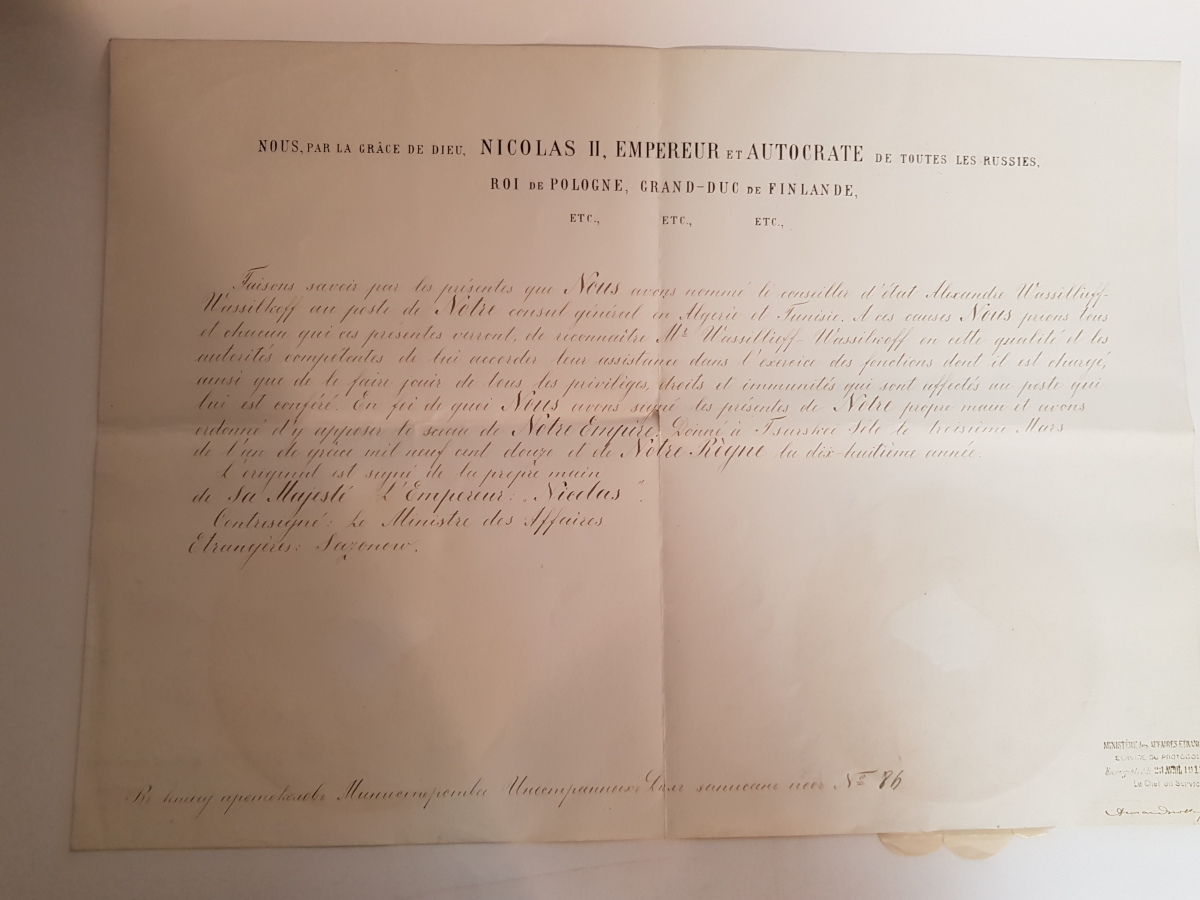 NOUS, PAR LA GRÂCE DE DIEU, NICOLAS II, EMPEREUR ET AUTOCRATE DE TOUTES LES RUSSIES,
ROI DE POLOGNE, GRAND-DUC DE FINLANDE,
ETC., ETC., ETC.,
Faisons savoir par les présentes que Nous avons nommé le conseiller d'état Alexandre Wassilieff-
Wassilkoff au poste de Notre consul général en Algérie et Tunisie. A ces causes Nous prions tous
et chacun qui ces présentes verront, de reconnaître Mr Wassilieff-Wassilkoff en cette qualité et les
autorités compétentes de lui accorder leur assistance dans l'exercice des fonctions dont il est chargé,
ainsi que de le faire jouir de tous les privilèges, droits et immunités qui sont affectés au poste qui
lui est conféré. En foi de quoi Nous avons signé les présentes de Notre propre main et avons
ordonné d'y apposer le sceau de Notre Empire. Donné à Tsarskoe Selo le troisième Mars
de l'an de grâce mil neuf cent douze et de Notre Règne la dix-huitième année.
L'original est signé de la propre main
de Sa Majesté L'Empereur: „Nicolas".
Contresigné: Le Ministre des Affaires
Etrangères: Sazonow.
Въ книгу протоколовъ Министерства Иностранныхъ Дѣлъ записано подъ № 86
MINISTÈRE des AFFAIRES ETRANG
SERVICE DU PROTOCOL
Enregistré 23 AVRIL 191
Le Chef du Service